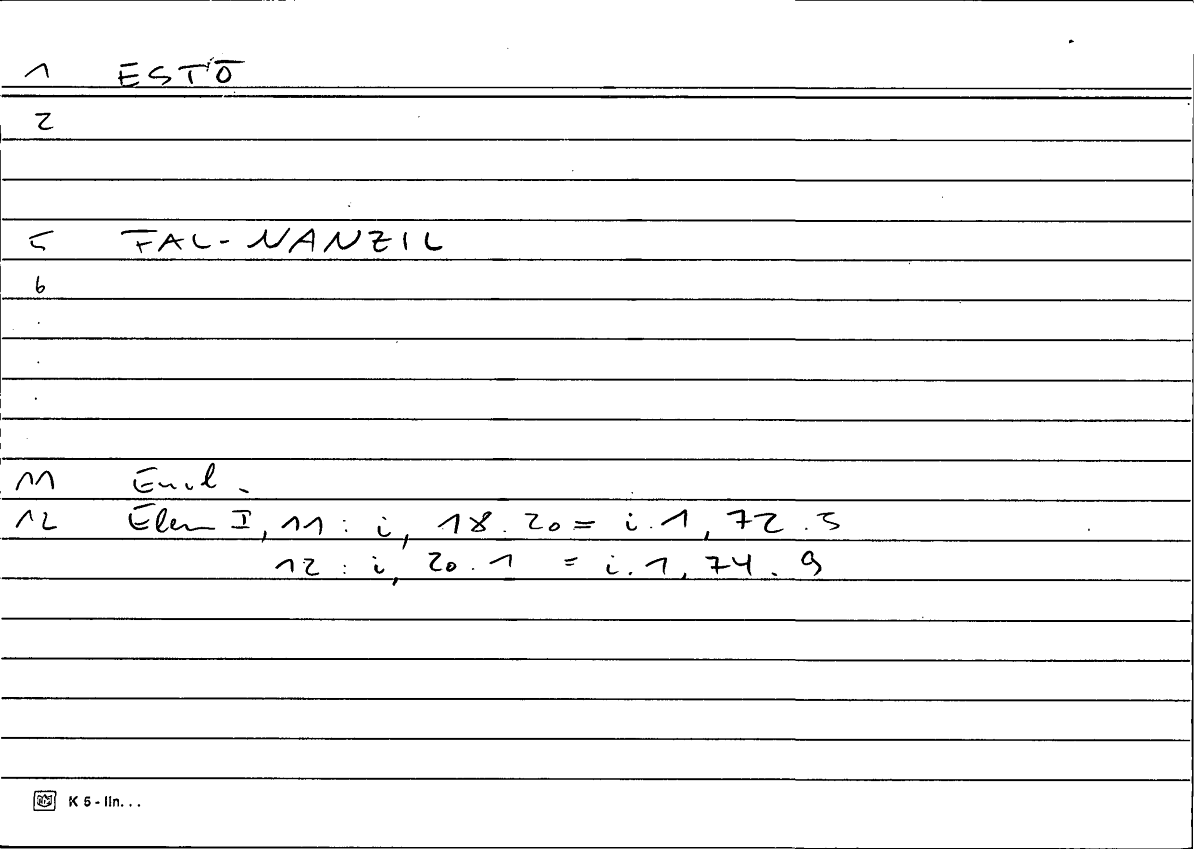 1 ESTŌ
2
5 FAL-NANZIL
6
.
.
.
11 Eucl.
12 Elem I, 11 : i, 18.20 = i.1, 72.5
12 : i, 20.1 = i.1, 74.9
K 5 - lin...